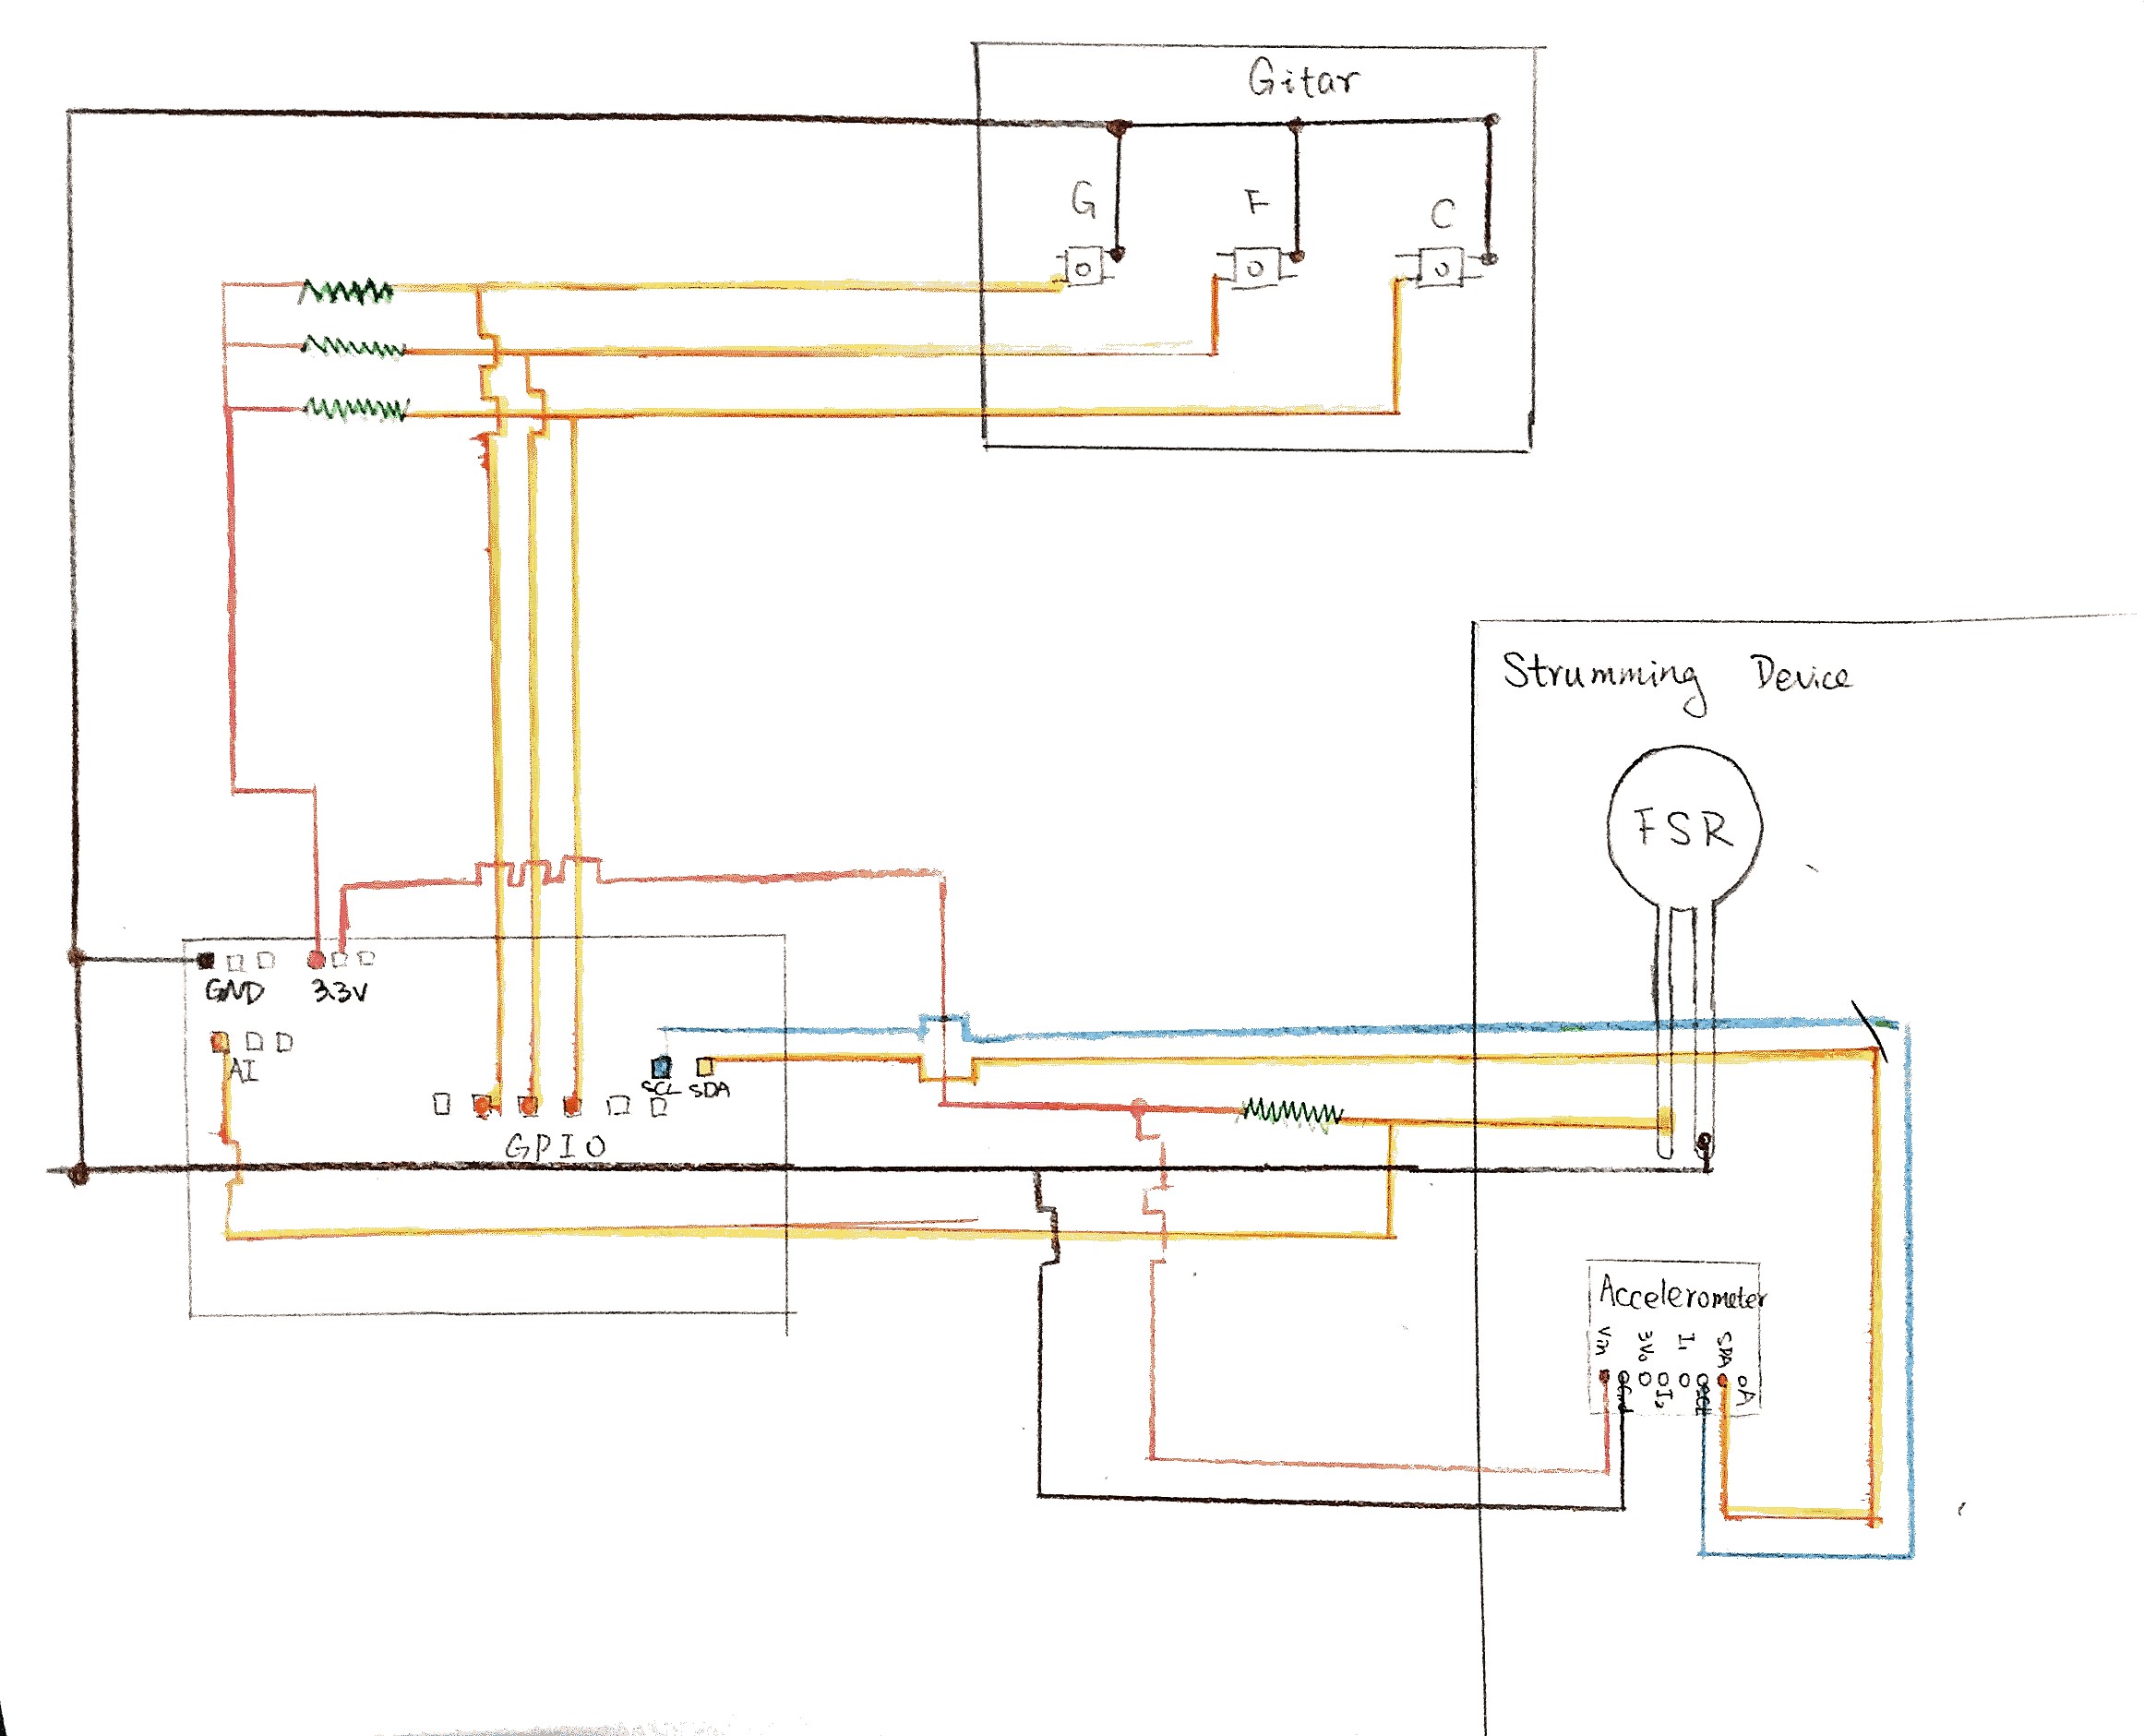 Gitar
G F C
Strumming Device
FSR
GND 3.3V
AI
SCL SDA
GPIO
Accelerometer
Vin 3Vo I1 SDA
Gnd I2 SCL A